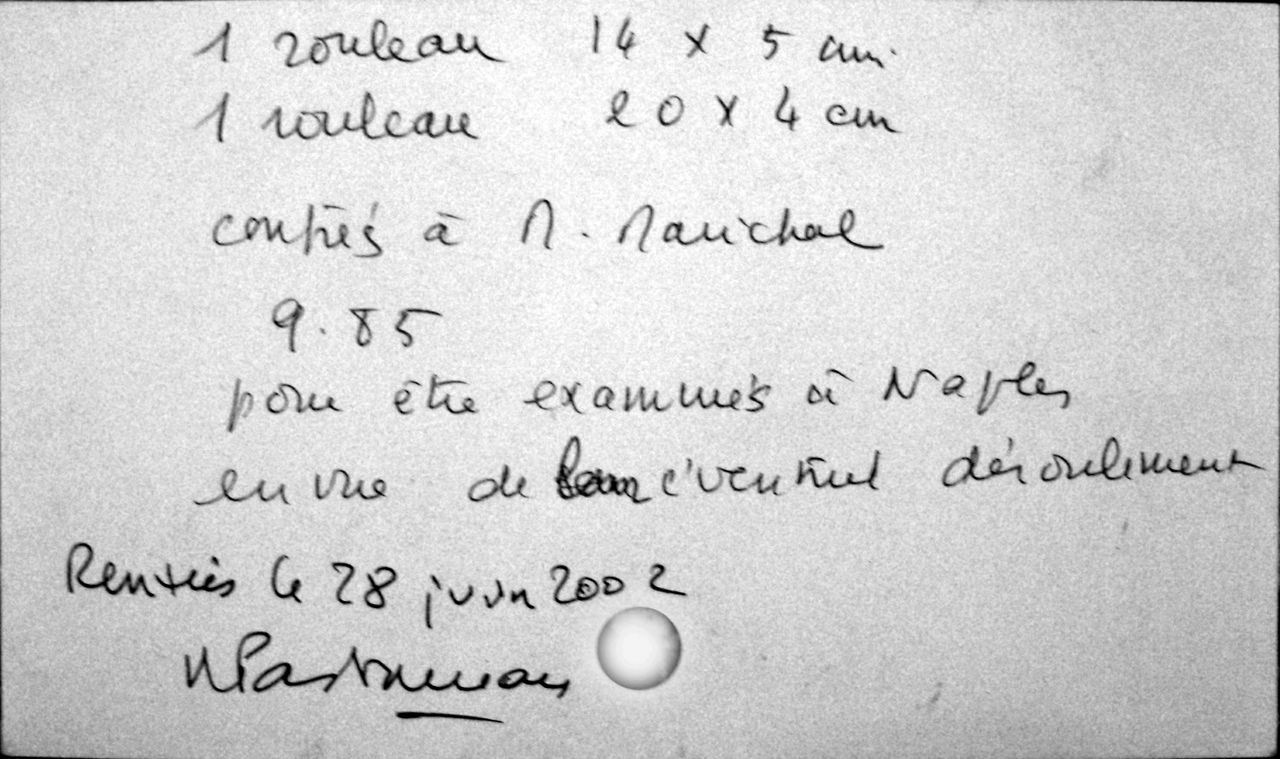 1 rouleau 14 x 5 cm.
1 rouleau 20 x 4 cm
confiés à M. Marichal
9.85
pour être examinés à Naples
en vue de éventuel déroulement
Rentrés le 28 juin 2002